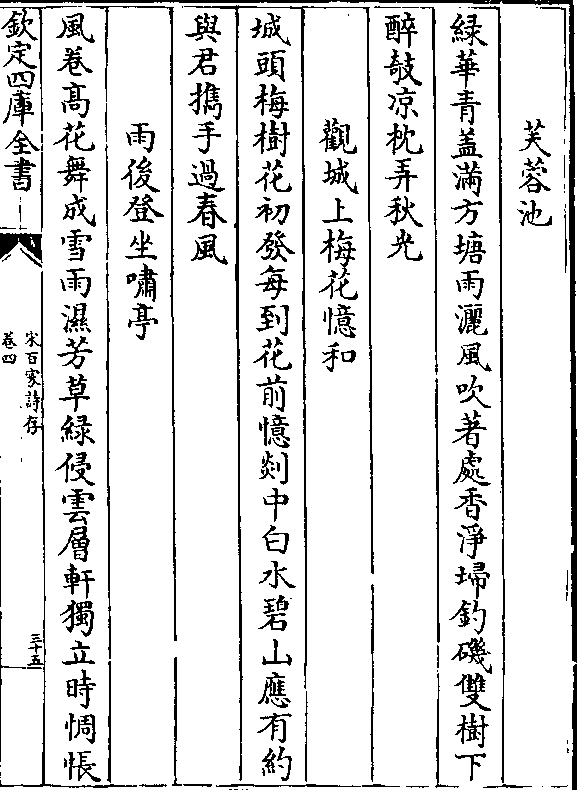 芙蓉池
緑華青盖滿方塘雨灑風吹著處香淨埽釣磯雙樹下
醉攲凉枕弄秋光
觀城上梅花憶和
城頭梅樹花初發每到花前憶剡中白水碧山應有約
與君擕手過春風
雨後登坐嘯亭
風卷髙花舞成雪雨濕芳草緑侵雲層軒獨立時惆悵
欽定四庫全書
宋百家詩存
卷四
三十五